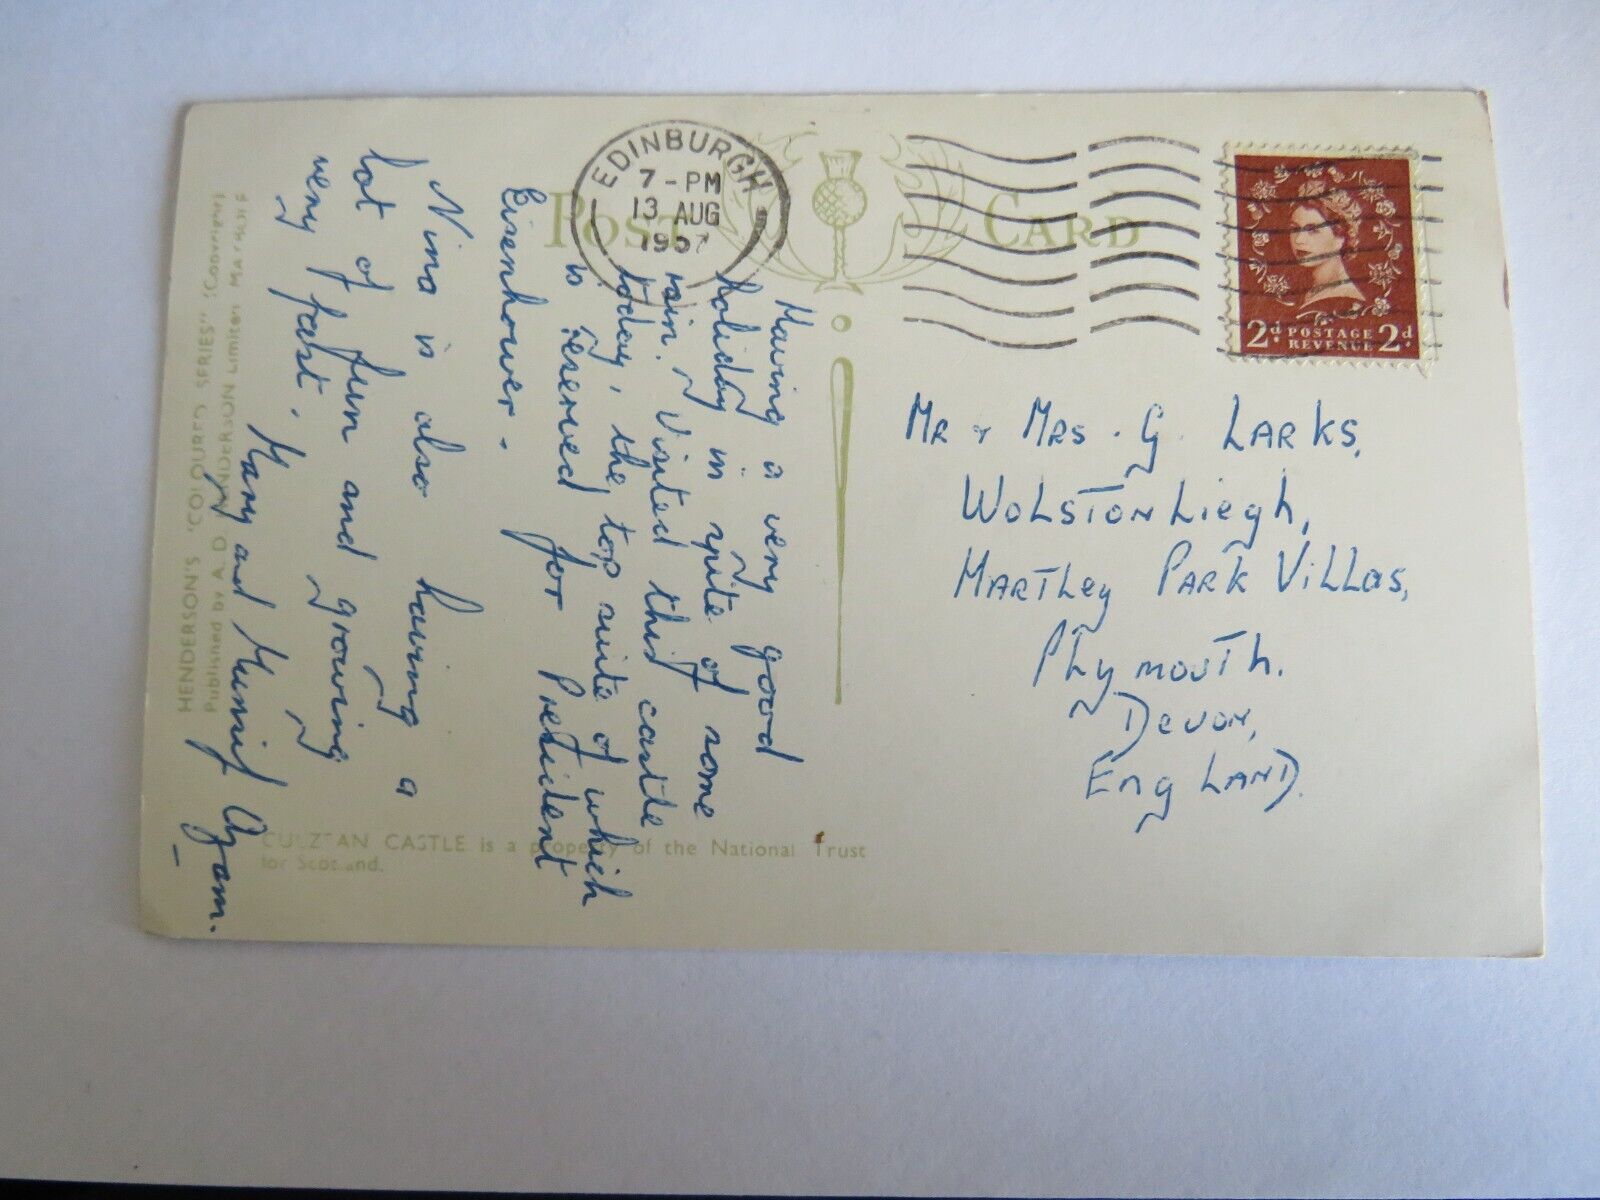 POST CARD
EDINBURGH
7 - PM
13 AUG
1957
2d POSTAGE 2d
REVENUE
Having a very good
holiday in spite of some
rain. Visited this castle
today, the top suite of which
is reserved for President
Eisenhower.
Nina is also having a
lot of fun and growing
very fast.
Mary and Munif Azam.
MR + MRS. G. LARKS,
WOLSTONLIEGH,
HARTLEY PARK VILLAS,
PLYMOUTH.
DEVON,
ENGLAND.
CULZEAN CASTLE is a property of the National Trust
for Scotland.
HENDERSON'S 'COLOURED SERIES' (Copyright)
Published by A. D. HENDERSON Limited MAYBOLE